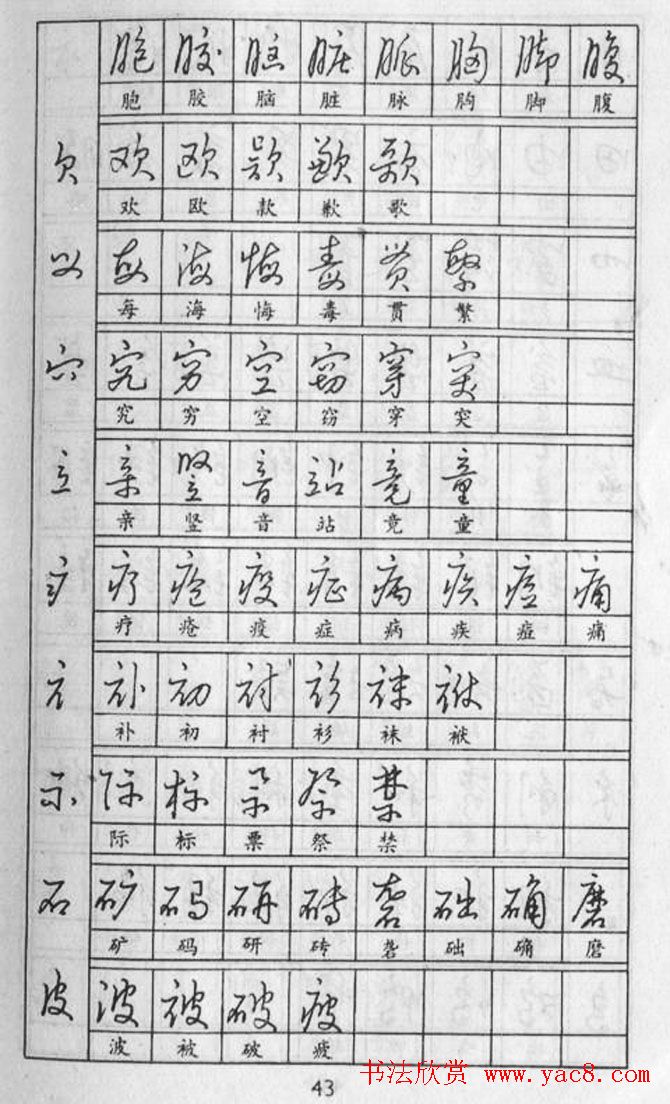 胞 胶 脑 脏 脉 胸 脚 腹
胞 胶 脑 脏 脉 胸 脚 腹
欠 欢 欧 款 歉 歌
欢 欧 款 歉 歌
每 海 悔 毒 贯 繁
每 海 悔 毒 贯 繁
穴 究 穷 空 窃 穿 突
究 穷 空 窃 穿 突
立 亲 竖 音 站 竟 童
亲 竖 音 站 竟 童
疒 疗 疮 疫 症 病 疾 痘 痛
疗 疮 疫 症 病 疾 痘 痛
衤 补 初 衬 衫 袜
补 初 衬 衫 袜
示 际 标 票 祭 禁
际 标 票 祭 禁
石 矿 码 研 砖 砻 础 确 磨
矿 码 研 砖 砻 础 确 磨
皮 波 被 破 疲
波 被 破 疲
43
书法欣赏 www.yac8.com